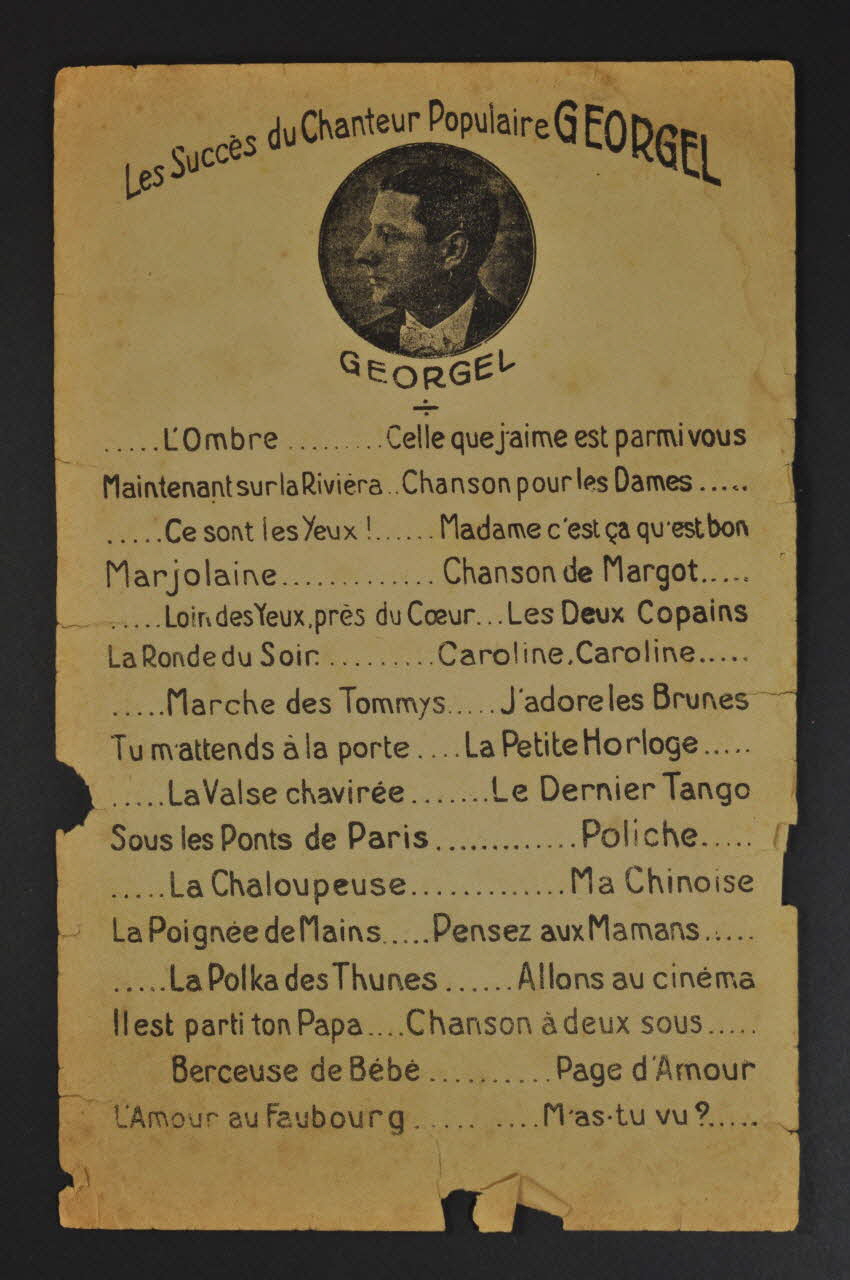 Les Succès du Chanteur Populaire GEORGEL
GEORGEL
.....L'Ombre .........Celle que j'aime est parmi vous
Maintenant sur la Riviéra..Chanson pour les Dames.....
.....Ce sont les Yeux !......Madame c'est ça qu'est bon
Marjolaine.............Chanson de Margot.....
.....Loin des Yeux, près du Cœur...Les Deux Copains
La Ronde du Soir..........Caroline, Caroline.....
.....Marche des Tommys.....J'adore les Brunes
Tu m'attends à la porte....La Petite Horloge.....
.....La Valse chavirée.......Le Dernier Tango
Sous les Ponts de Paris.............Poliche.....
.....La Chaloupeuse.............Ma Chinoise
La Poignée de Mains.....Pensez aux Mamans.....
.....La Polka des Thunes......Allons au cinéma
Il est parti ton Papa....Chanson à deux sous.....
Berceuse de Bébé..........Page d'Amour
L'Amour au Faubourg..........M'as-tu vu ?.....